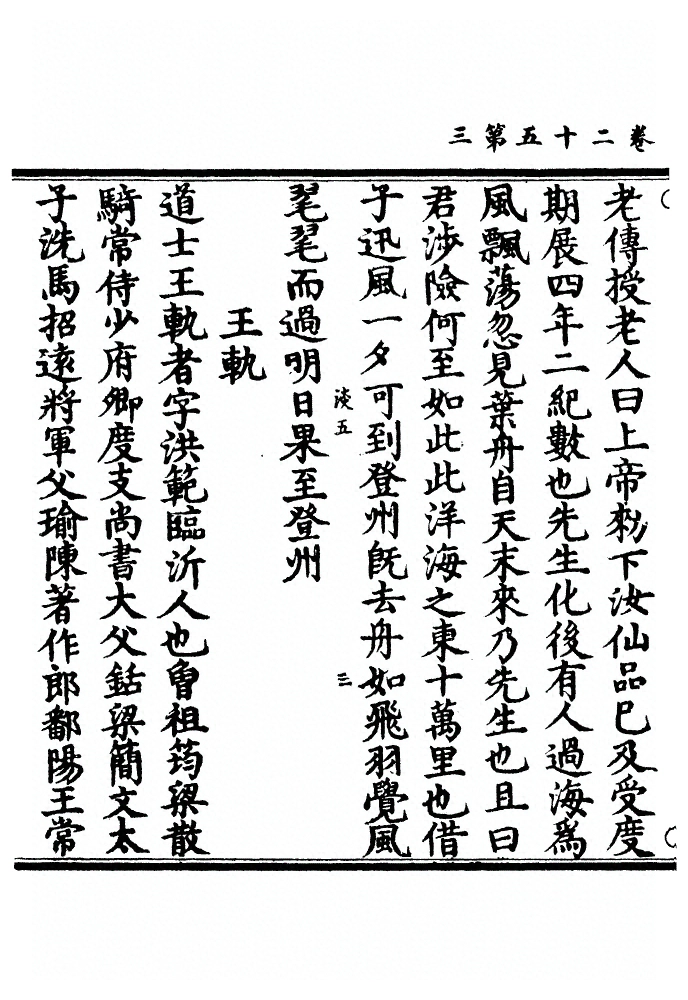 卷二十五第三
老傳授老人曰上帝敕下汝仙品已及受度
期展四年二紀數也先生化後有人過海為
風飄蕩忽見葉舟自天末來乃先生也且曰
君涉險何至如此此洋海之東十萬里也借
子迅風一夕可到登州旣去舟如飛羽覺風
淡五
三
毣毣而過明日果至登州
王軌
道士王軌者字洪範臨沂人也曾祖筠梁散
騎常侍少府卿度支尚書大父銛梁簡文太
子洗馬招遠將軍父瑜陳著作郎鄱陽王常